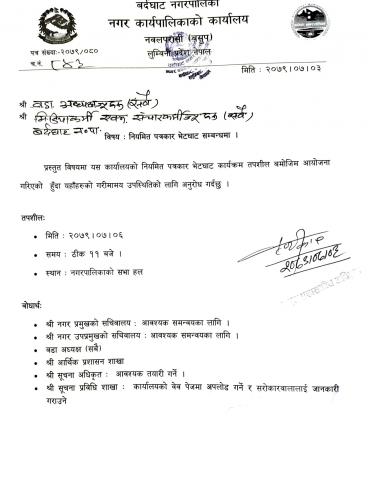 बर्दघाट नगरपालिका
नगर कार्यपालिकाको कार्यालय
नवलपरासी (बसुप)
लुम्बिनी प्रदेश नेपाल
पत्र संख्या:-२०७९/०८०
च.नं. ८४३
मिति : २०७९।०७।०३
श्री वडा अध्यक्षज्यूहरू (सबै)
श्री मिडियाकर्मी एवम् संचारकर्मीज्यूहरू (सबै)
बर्दघाट न.पा.
विषय : नियमित पत्रकार भेटघाट सम्बन्धमा ।
प्रस्तुत विषयमा यस कार्यालयको नियमित पत्रकार भेटघाट कार्यक्रम तपशील बमोजिम आयोजना
गरिएको हुँदा यहाँहरुको गरीमामय उपस्थितिको लागि अनुरोध गर्दछु ।
तपशील:
• मिति : २०७९।०७।०६
• समय : ठीक ११ बजे ।
• स्थान : नगरपालिकाको सभा हल
२०७९।०७।०३
बोधार्थ:
• श्री नगर प्रमुखको सचिवालय : आवश्यक समन्वयका लागि ।
• श्री नगर उपप्रमुखको सचिवालय : आवश्यक समन्वयका लागि ।
• वडा अध्यक्ष (सबै)
• श्री आर्थिक प्रशासन शाखा
• श्री सूचना अधिकृत : आवश्यक तयारी गर्ने ।
• श्री सूचना प्रविधि शाखा : कार्यालयको वेव पेजमा अपलोड गर्ने र सरोकारवालालाई जानकारी
गराउने